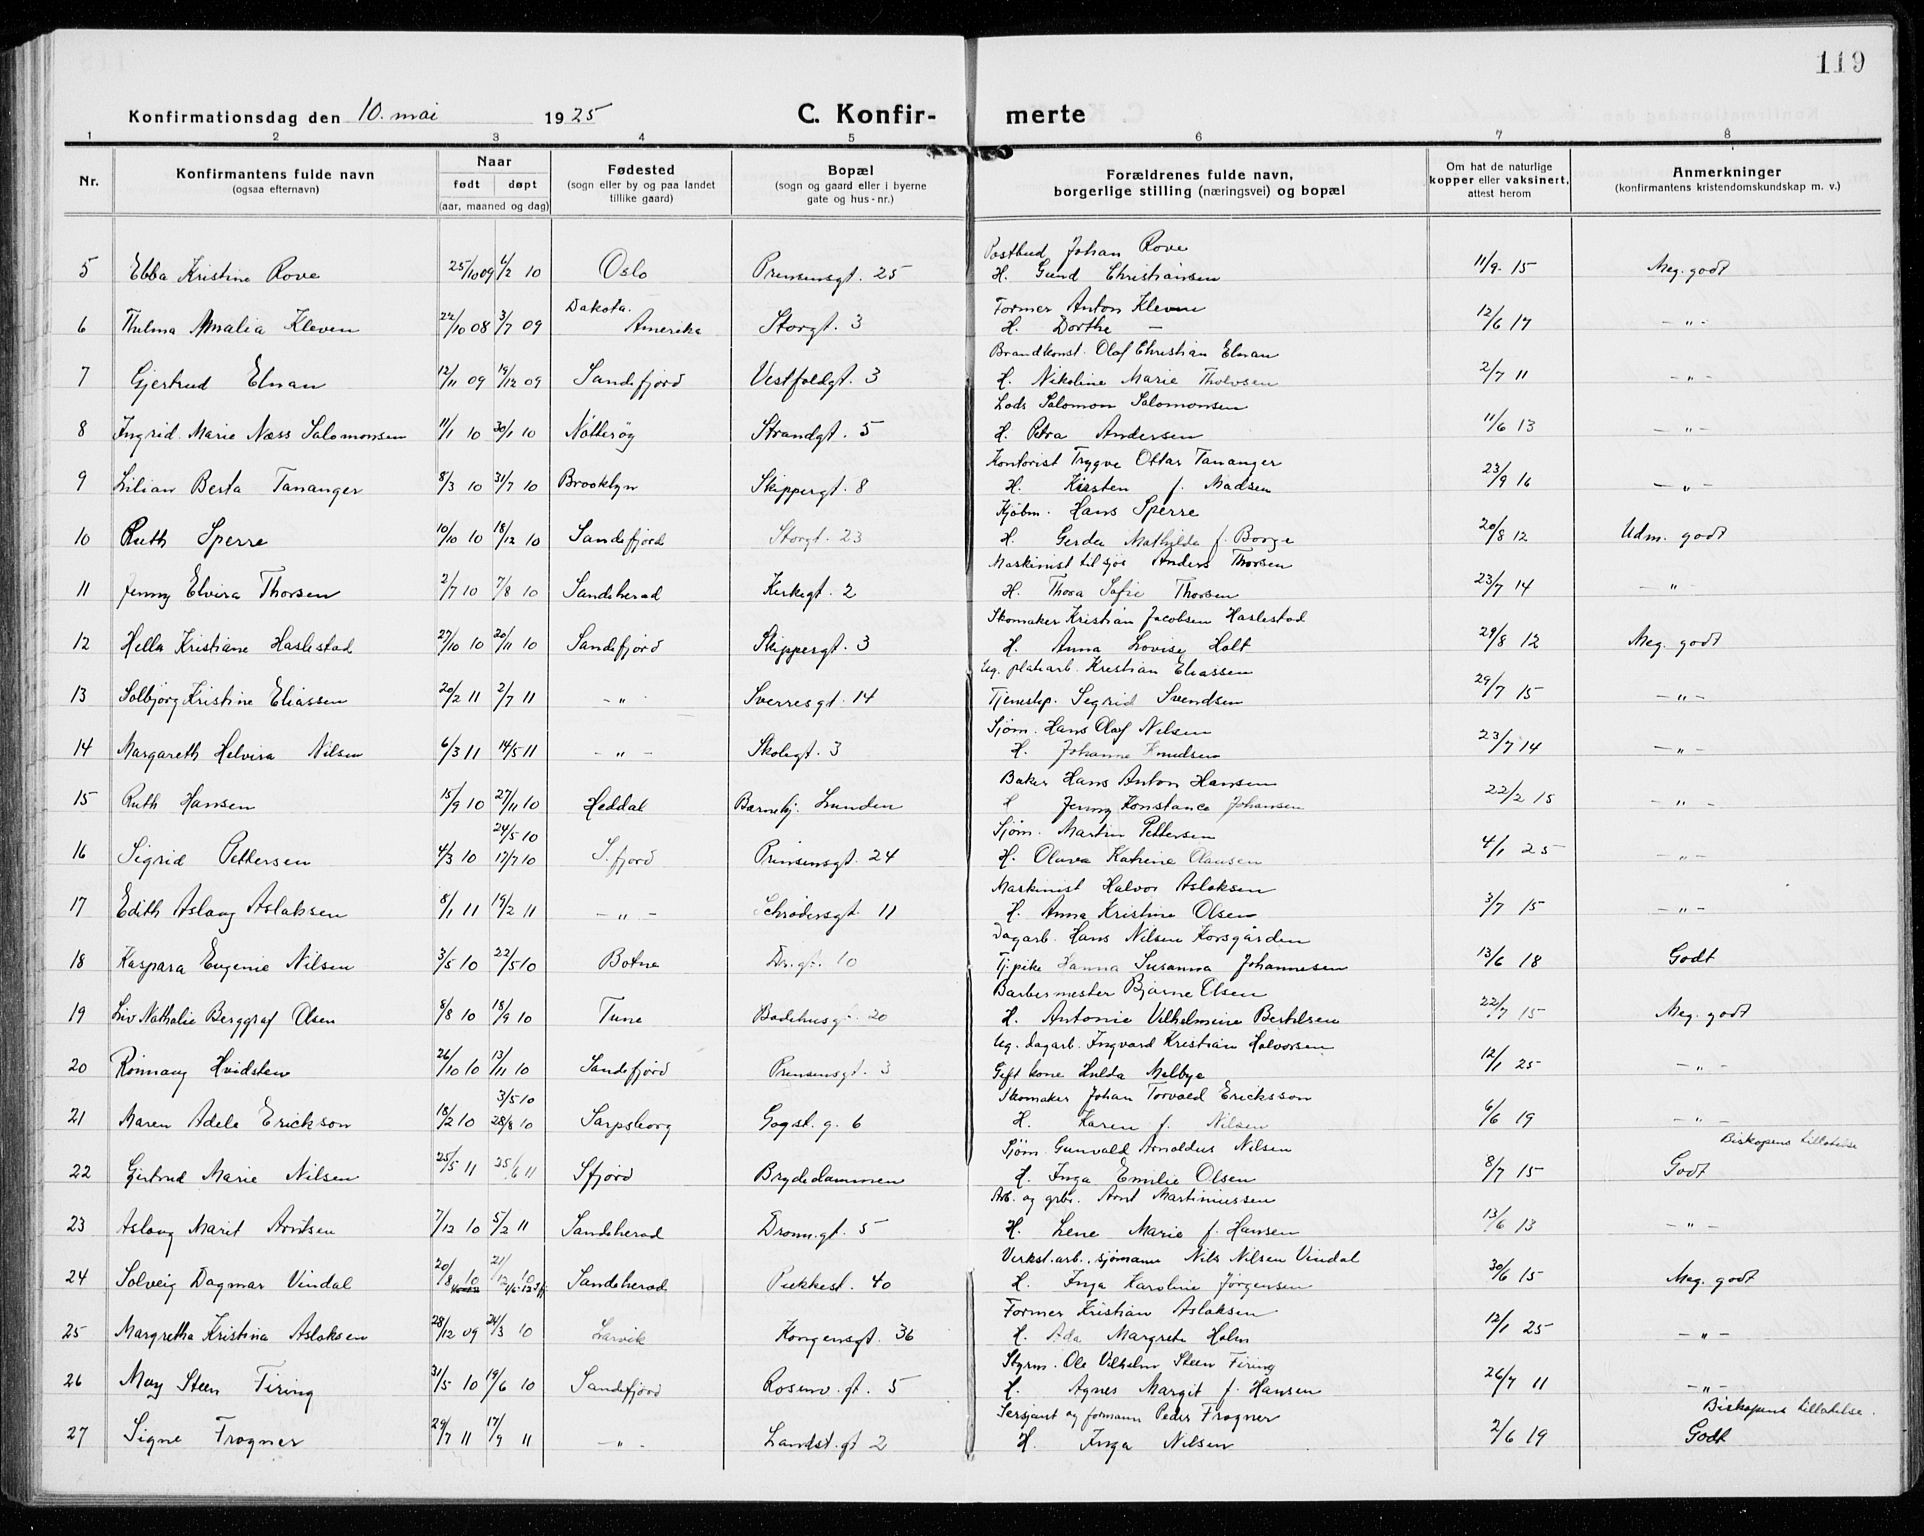 119
Konfirmationsdag den 10. mai 1925 C. Konfir- merte
1 2 3 4 5 6 7 8
Nr. Konfirmantens fulde navn (ogsaa efternavn) Naar født døpt (aar, maaned og dag) Fødested (sogn eller by og paa landet tillike gaard) Bopæl (sogn og gaard eller i byerne gate og hus-nr.) Forældrenes fulde navn, borgerlige stilling (næringsvei) og bopæl Om hat de naturlige kopper eller vaksinert, attest herom Anmerkninger (konfirmantens kristendomskundskap m. v.)
Postbud Johan Rove
5 Ebba Kristine Rove 25/10 09 6/2 10 Oslo Prinsensgt. 25 H. Gund Christiansen 11/9 15 Meg. godt
Former Anton Kleven
6 Thelma Amalia Kleven 22/10 08 3/7 09 Dakota. Amerika Storgt. 3 H. Dorthe — 12/6 17 — „ —
Brandkonst. Olaf Christian Elnan
7 Gjertrud Elnan 12/11 09 19/12 09 Sandefjord Vestfoldgt. 3 H. Nikoline Marie Tholvsen 2/7 11 — „ —
Lods Salomon Salomonsen
8 Ingrid Marie Næss Salomonsen 11/1 10 30/1 10 Nøtterøy Strandgt. 5 H. Petra Andersen 11/6 13 — „ —
Kontorist Trygve Ottar Tananger
9 Lilian Berta Tananger 8/3 10 31/7 10 Brooklyn Skippergt. 8 H. Kirsten f. Madsen 23/9 16 — „ —
Kjøbm. Hans Sperre
10 Ruth Sperre 10/10 10 18/12 10 Sandefjord Storgt. 23 H. Gerda Mathilde f. Borge 20/8 12 Udm. godt
Maskinist til sjøs Anders Thorsen
11 Jenny Elvira Thorsen 2/7 10 7/8 10 Sandeherad Kirkegt. 2 H. Thora Sofie Thorsen 23/7 14 — „ —
Skomaker Kristian Jacobsen Haslestad
12 Hella Kristiane Haslestad 27/10 10 20/11 10 Sandefjord Skippergt. 3 H. Anna Lovise Holt 29/8 12 Meg. godt
Ug. platearb. Kristian Eliassen
13 Solbjørg Kristine Eliassen 20/2 11 2/7 11 — „ — Sverresgt. 14 Tjenestep. Sigrid Svendsen 29/7 15 — „ —
Sjøm. Hans Olaf Nilsen
14 Margareth Helvira Nilsen 6/3 11 14/5 11 — „ — Skolegt. 3 H. Johanne Knudsen 23/7 14 — „ —
Baker Hans Anton Hansen
15 Ruth Hansen 15/9 10 27/11 10 Heddal Barnehj. Lunden H Jenny Konstance Johansen 22/2 15 — „ —
24/5 10 Sjøm. Martin Pettersen
16 Sigrid Pettersen 4/3 10 17/7 10 S.fjord Prinsensgt. 24 H. Olava Katrine Olausen 4/1 25 — „ —
Maskinist Halvor Aslaksen
17 Edith Aslaug Aslaksen 8/1 11 19/2 11 — „ — Schrødersgt. 11 H. Anna Kristine Olsen 3/7 15 — „ —
Dagarb. Hans Nilsen Korsgården
18 Kaspara Eugenie Nilsen 3/5 10 22/5 10 Botne Dr.gt. 10 Tj.pike Hanna Susanna Johannesen 13/6 18 Godt
Barbermester Bjarne Olsen
19 Liv Nathalie Berggraf Olsen 8/8 10 18/9 10 Tune Badehusg. 20 H. Antonie Vilhelmine Bertilsen 22/7 15 Meg. godt
Ug. dagarb. Ingvard Kristian Halvorsen
20 Rønnaug Hvidsten 26/10 10 13/11 10 Sandefjord Prinsensgt. 3 Gift kone Hulda Melbye 12/1 25 — „ —
3/5 10 Skomaker Johan Torvald Ericksson
21 Maren Adele Erickson 18/2 10 28/8 10 Sarpsborg Gogst. g. 6 H. Karen f. Nilsen 6/6 19 — „ —
Sjøm Gunvald Arnoldus Nilsen Biskopens tillatelse
22 Gjertrud Marie Nilsen 25/5 11 25/6 11 Sfjord Brydedammen H. Inga Emilie Olsen 8/7 15 Godt
Arb. og grbr. Arnt Martiniussen
23 Aslaug Marit Arntsen 7/12 10 5/2 11 Sandeherad Dronn.gt. 5 H. Lene Marie f. Hansen 13/6 13 — „ —
Verkst.arb., sjømann Nils Nilsen Vindal
24 Solveig Dagmar Vindal 20/8 10 21/12 10 Sandeherad Pukkest. 40 H. Inga Karoline Jørgensen 30/6 15 Meg. godt
Former Kristian Aslaksen
25 Margretha Kristina Aslaksen 28/12 09 24/3 10 Larvik Kongensgt. 36 H. Ada Margrete Holm 12/1 25 — „ —
Styrm. Ole Vilhelm Steen Firing
26 May Steen Firing 31/5 10 19/6 10 Sandefjord Rosenv. gt. 5 H. Agnes Margit f. Hansen 26/7 11 — „ —
Sersjant og formann Peder Frogner Biskopens tillatelse.
27 Signe Frogner 29/7 11 17/9 11 — „ — Landst. gt 2 H. Inga Nilsen 2/6 19 Godt